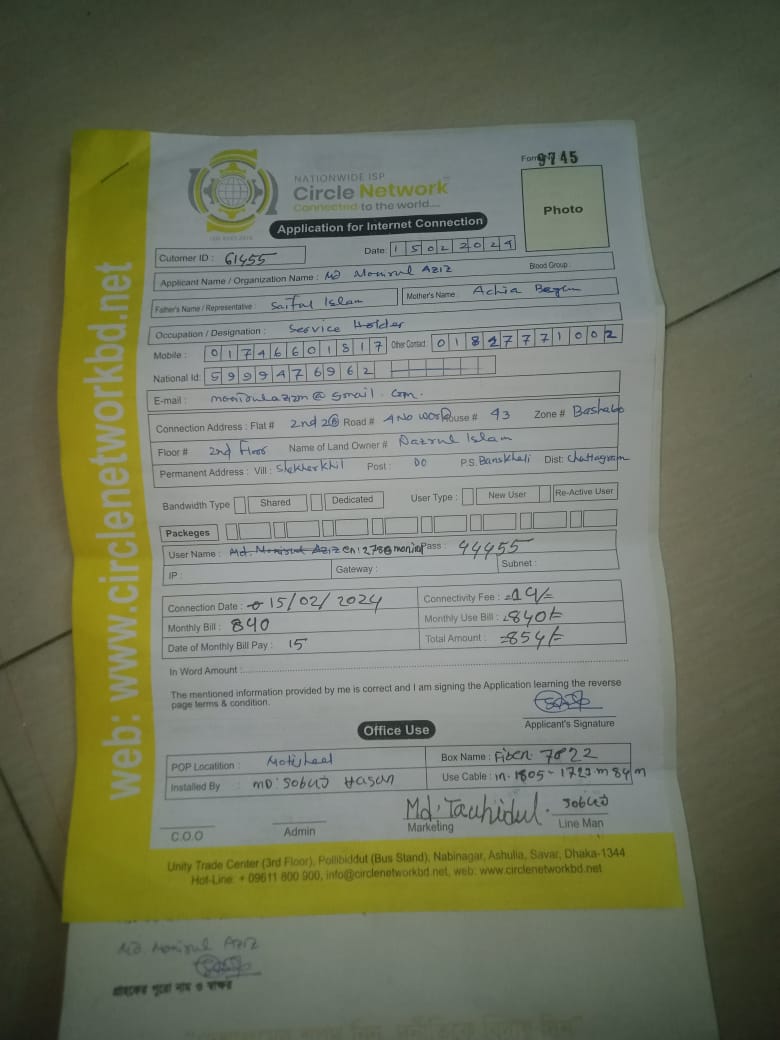 Form 9745
NATIONWIDE ISP
Circle Network
Connected to the world....
Application for Internet Connection
Photo
Cutomer ID : 61455
Date: 15022024
Applicant Name / Organization Name : Md Monirul Aziz Blood Group :
Father's Name / Representative : Saiful Islam Mother's Name : Achia Begum
Occupation / Designation : Service Holder
Mobile : 01746601817 Other Contact 01827771002
National Id: 5999476962
E-mail : @gmail.com.
Connection Address : Flat # 2nd Road # 4 No House # 43 Zone # Bashabo
Floor # 2nd Floor Name of Land Owner # Nazrul Islam
Permanent Address : Vill : Shekherkhil Post : DO P.S. Banskhali Dist: Chattagram
Bandwidth Type Shared Dedicated User Type : New User Re-Active User
Packeges
User Name : Md. Monirul Aziz Pass : 44455
IP : Gateway : Subnet :
Connection Date : 15/02/2024 Connectivity Fee :
Monthly Bill : 840 Monthly Use Bill : =840/=
Date of Monthly Bill Pay : 15 Total Amount : =854/=
In Word Amount :
The mentioned information provided by me is correct and I am signing the Application learning the reverse
page terms & condition.
Applicant's Signature
Office Use
POP Locatition : Motijheel Box Name : Fiber 7822
Installed By : MD: Sobuj Hasan Use Cable : in-1805-1723 m 84 m
Md. Tauhidul. Sobuj
C.O.O Admin Marketing Line Man
Unity Trade Center (3rd Floor), Pollibiddut (Bus Stand), Nabinagar, Ashulia, Savar, Dhaka-1344
Hot-Line: + 09611 800 900, info@circlenetworkbd.net, web: www.circlenetworkbd.net
web: www.circlenetworkbd.net
Md. Monirul Aziz
গ্রাহকের পুরো নাম ও স্বাক্ষর